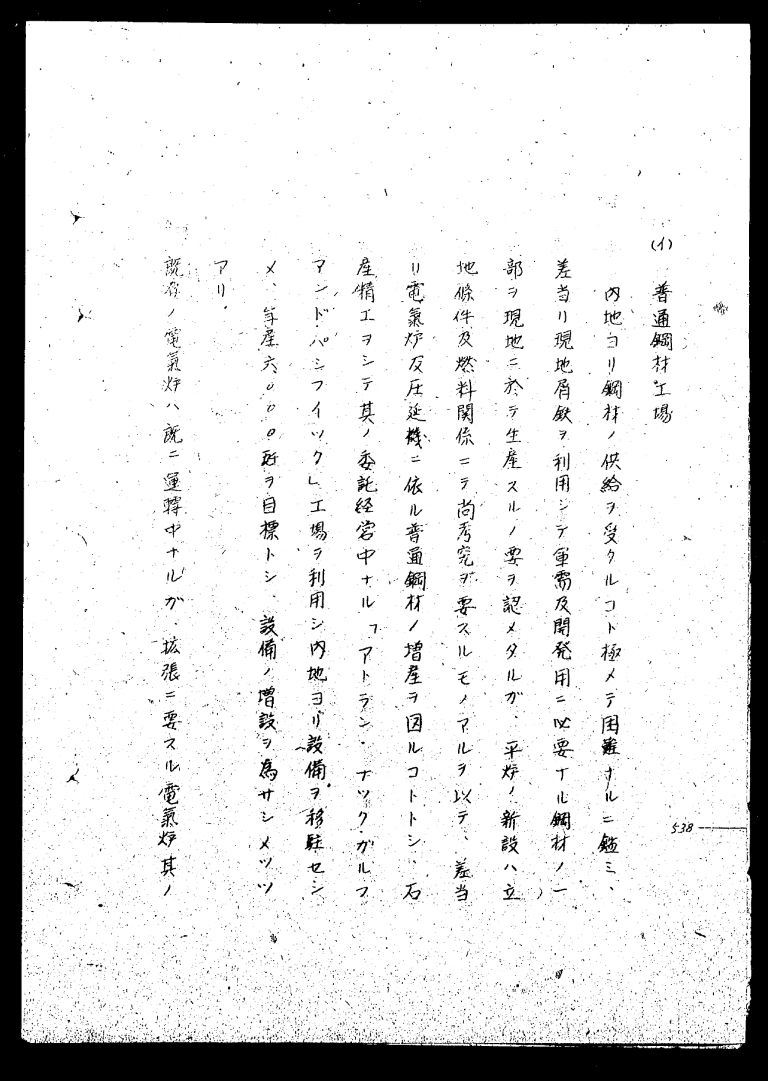 (イ) 普通鋼材工場
内地ヨリ鋼材ノ供給ヲ受クルコト極メテ困難ナルニ鑑ミ、
差当リ現地屑鉄ヲ利用シテ軍需及開発用ニ必要ナル鋼材ノ一
部ヲ現地ニ於テ生産スルノ要ヲ認メタルガ、平炉ノ新設ハ立
地條件及燃料関係ニテ尚考究ヲ要スルモノアルヲ以テ、差当
リ電氣炉及圧延機ニ依ル普通鋼材ノ増産ヲ図ルコトトシ、石
産精工ヲシテ其ノ委託経営中ナル「アトラン・ナツク・ガルフ
アンド・パシフイツク」工場ヲ利用シ内地ヨリ設備ヲ移駐セシ
メ、年産六、〇〇〇瓲ヲ目標トシ、設備ノ増設ヲ為サシメツツ
アリ。
既存ノ電氣炉ハ既ニ運轉中ナルガ、拡張ニ要スル電氣炉其ノ
538